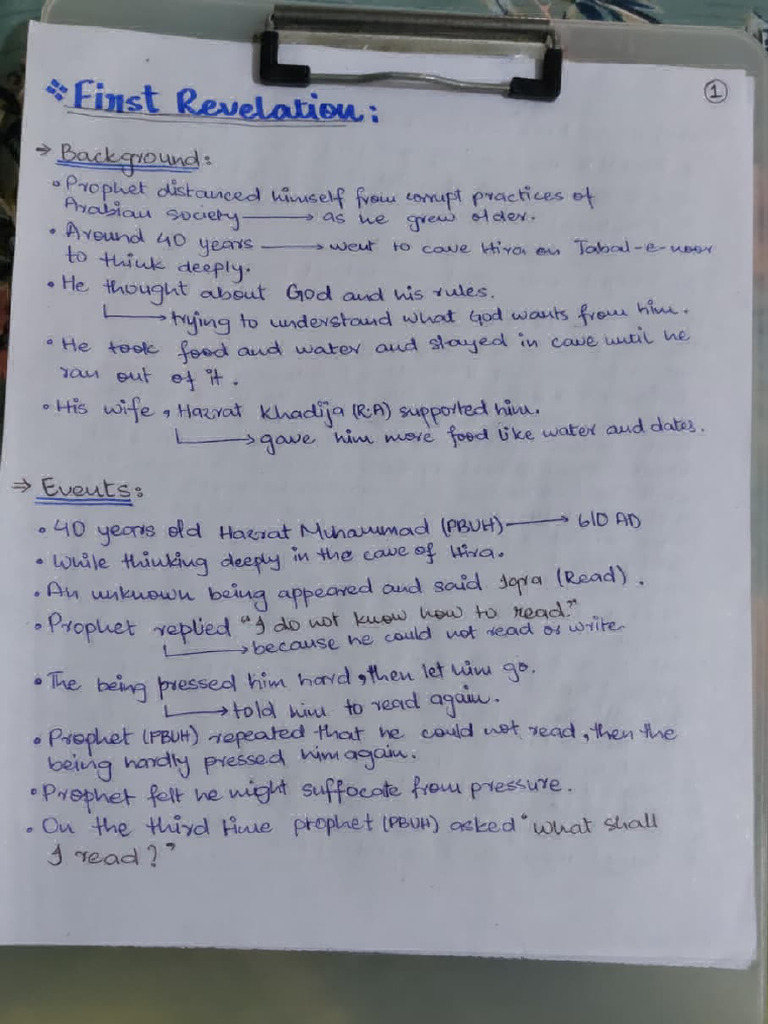 ①
❖ First Revelation:
→ Background:
• Prophet distanced himself from corrupt practices of
Arabian society → as he grew older.
• Around 40 years → went to cave Hira on Jabal-e-noor
to think deeply.
• He thought about God and his rules.
↳ trying to understand what God wants from him.
• He took food and water and stayed in cave until he
ran out of it.
• His wife, Hazrat Khadija (R.A) supported him.
↳ gave him more food like water and dates.
⇒ Events:
• 40 years old Hazrat Muhammad (PBUH) → 610 AD
• While thinking deeply in the cave of Hira.
• An unknown being appeared and said Iqra (Read).
• Prophet replied "I do not know how to read."
↳ because he could not read or write.
• The being pressed him hard, then let him go.
↳ told him to read again.
• Prophet (PBUH) repeated that he could not read, then the
being hardly pressed him again.
• Prophet felt he might suffocate from pressure.
• On the third time prophet (PBUH) asked "what shall
I read?"